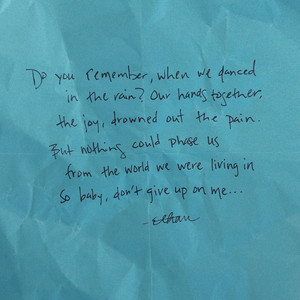 Do you remember, when we danced
in the rain? Our hands together,
the joy, drowned out the pain.
But nothing could phase us
from the world we were living in
So baby, don't give up on me...
- Ethan